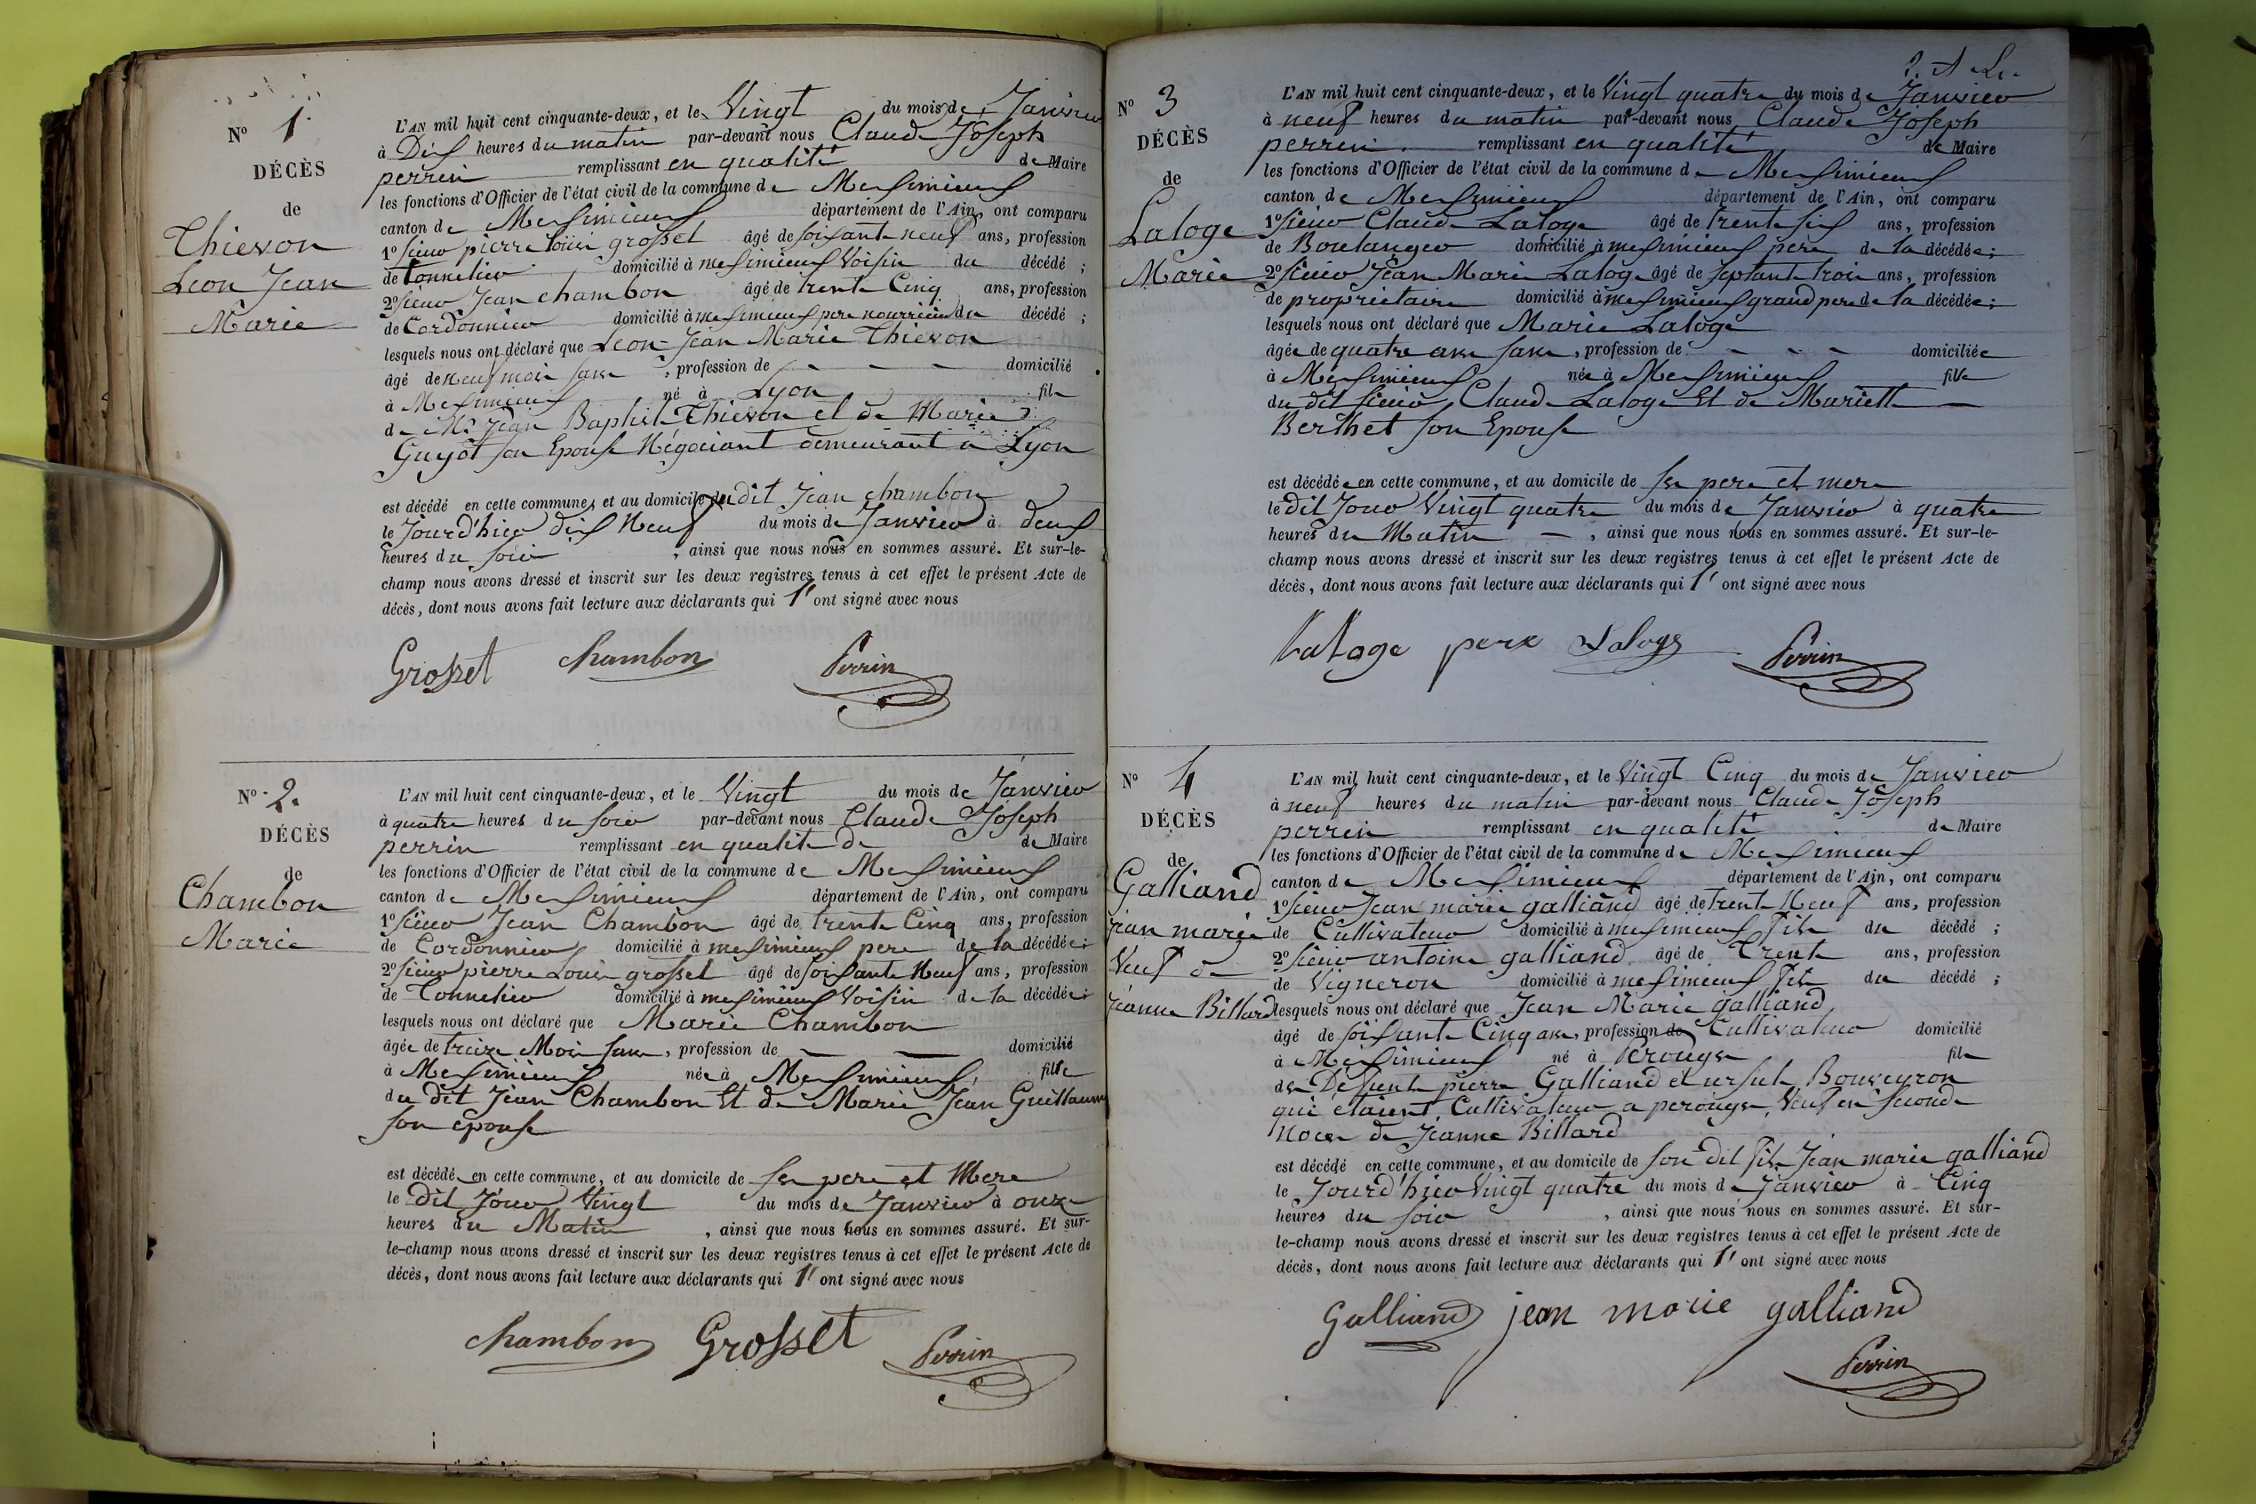 N° 1.
DÉCÈS
de
Thievon
Leon Jean
Marie
L'AN mil huit cent cinquante-deux, et le Vingt du mois de Janvier
à Dix heures du matin par-devant nous Claude Joseph
perrin remplissant en qualité de Maire
les fonctions d'Officier de l'état civil de la commune de Meximieux
canton de Meximieux département de l'Ain, ont comparu
1° sieur pierre Louis grosset âgé de soixante neuf ans, profession
de tonnelier domicilié à meximieux Voisin du décédé ;
2° sieur Jean chambon âgé de trente Cinq ans, profession
de Cordonnier domicilié à meximieux pere nourricier du décédé ;
lesquels nous ont déclaré que Leon Jean Marie Thievon
âgé de neuf mois sans , profession de — — — domicilié
à Meximieux né à Lyon fils
de Mr Jean Baptiste Thievon et de Marie
Guyot son Epouse Négociant demeurant a Lyon
est décédé en cette commune, et au domicile du dit Jean chambon
le Jourd'hier dix Neuf du mois de Janvier à deux
heures du soir , ainsi que nous nous en sommes assuré. Et sur-le-
champ nous avons dressé et inscrit sur les deux registres tenus à cet effet le présent Acte de
décès, dont nous avons fait lecture aux déclarants qui l' ont signé avec nous
Grosset chambon Perrin
N° 2.
DÉCÈS
de
Chambon
Marie
L'AN mil huit cent cinquante-deux, et le Vingt du mois de Janvier
à quatre heures du soir par-devant nous Claude Joseph
perrin remplissant en qualité de de Maire
les fonctions d'Officier de l'état civil de la commune de Meximieux
canton de Meximieux département de l'Ain, ont comparu
1° sieur Jean Chambon âgé de trente Cinq ans, profession
de Cordonnier domicilié à meximieux pere de la décédée ;
2° sieur pierre Louis grosset âgé de soixante Neuf ans, profession
de Tonnelier domicilié à meximieux Voisin de la décédée ;
lesquels nous ont déclaré que Marie Chambon
âgée de treize Mois sans , profession de — — domicilié
à Meximieux née à Meximieux fille
du dit Jean Chambon Et de Marie Jean Guillaume
son epouse
est décédée en cette commune, et au domicile de ses pere et Mere
le dit Jour Vingt du mois de Janvier à onze
heures du Matin , ainsi que nous nous en sommes assuré. Et sur-
le-champ nous avons dressé et inscrit sur les deux registres tenus à cet effet le présent Acte de
décès, dont nous avons fait lecture aux déclarants qui l' ont signé avec nous
chambon Grosset Perrin
N° 3
DÉCÈS
de
Laloge
Marie
L'AN mil huit cent cinquante-deux, et le Vingt quatre du mois de Janvier
à neuf heures du matin par-devant nous Claude Joseph
perrin remplissant en qualité de Maire
les fonctions d'Officier de l'état civil de la commune de Meximieux
canton de Meximieux département de l'Ain, ont comparu
1° sieur Claude Laloge âgé de trente six ans, profession
de Boulanger domicilié à meximieux pere de la décédée ;
2° sieur Jean Marie Laloge âgé de septante trois ans, profession
de propriétaire domicilié à meximieux grand pere de la décédée ;
lesquels nous ont déclaré que Marie Laloge
âgée de quatre ans sans , profession de — — — domiciliée
à Meximieux née à Meximieux fille
du dit sieur Claude Laloge Et de Mariette
Berthet son Epouse
est décédée en cette commune, et au domicile de ses pere et mere
le dit Jour Vingt quatre du mois de Janvier à quatre
heures du Matin — , ainsi que nous nous en sommes assuré. Et sur-le-
champ nous avons dressé et inscrit sur les deux registres tenus à cet effet le présent Acte de
décès, dont nous avons fait lecture aux déclarants qui l' ont signé avec nous
Laloge pere Laloge Perrin
N° 4
DÉCÈS
de
Galliand
jean marie
Veuf de
Jeanne Billard
L'AN mil huit cent cinquante-deux, et le Vingt Cinq du mois de Janvier
à neuf heures du matin par-devant nous Claude Joseph
perrin remplissant en qualité de Maire
les fonctions d'Officier de l'état civil de la commune de Meximieux
canton de Meximieux département de l'Ain, ont comparu
1° sieur Jean marie galliand âgé de trente Neuf ans, profession
de Cultivateur domicilié à meximieux fils du décédé ;
2° sieur antoine galliand âgé de Trente ans, profession
de Vigneron domicilié à meximieux fils du décédé ;
lesquels nous ont déclaré que Jean Marie galliand
âgé de soixante Cinq ans, profession de Cultivateur domicilié
à Meximieux né à Perouges fils
des Defunts pierre Galliand et ursule Bouveyron
qui étaient Cultivateur a perouges, Veuf en seconde
Noces de Jeanne Billard
est décédé en cette commune, et au domicile de son dit fils Jean marie galliand
le Jourd'hier Vingt quatre du mois de Janvier à Cinq
heures du soir , ainsi que nous nous en sommes assuré. Et sur-
le-champ nous avons dressé et inscrit sur les deux registres tenus à cet effet le présent Acte de
décès, dont nous avons fait lecture aux déclarants qui l' ont signé avec nous
Galliand jean marie galliand
Perrin